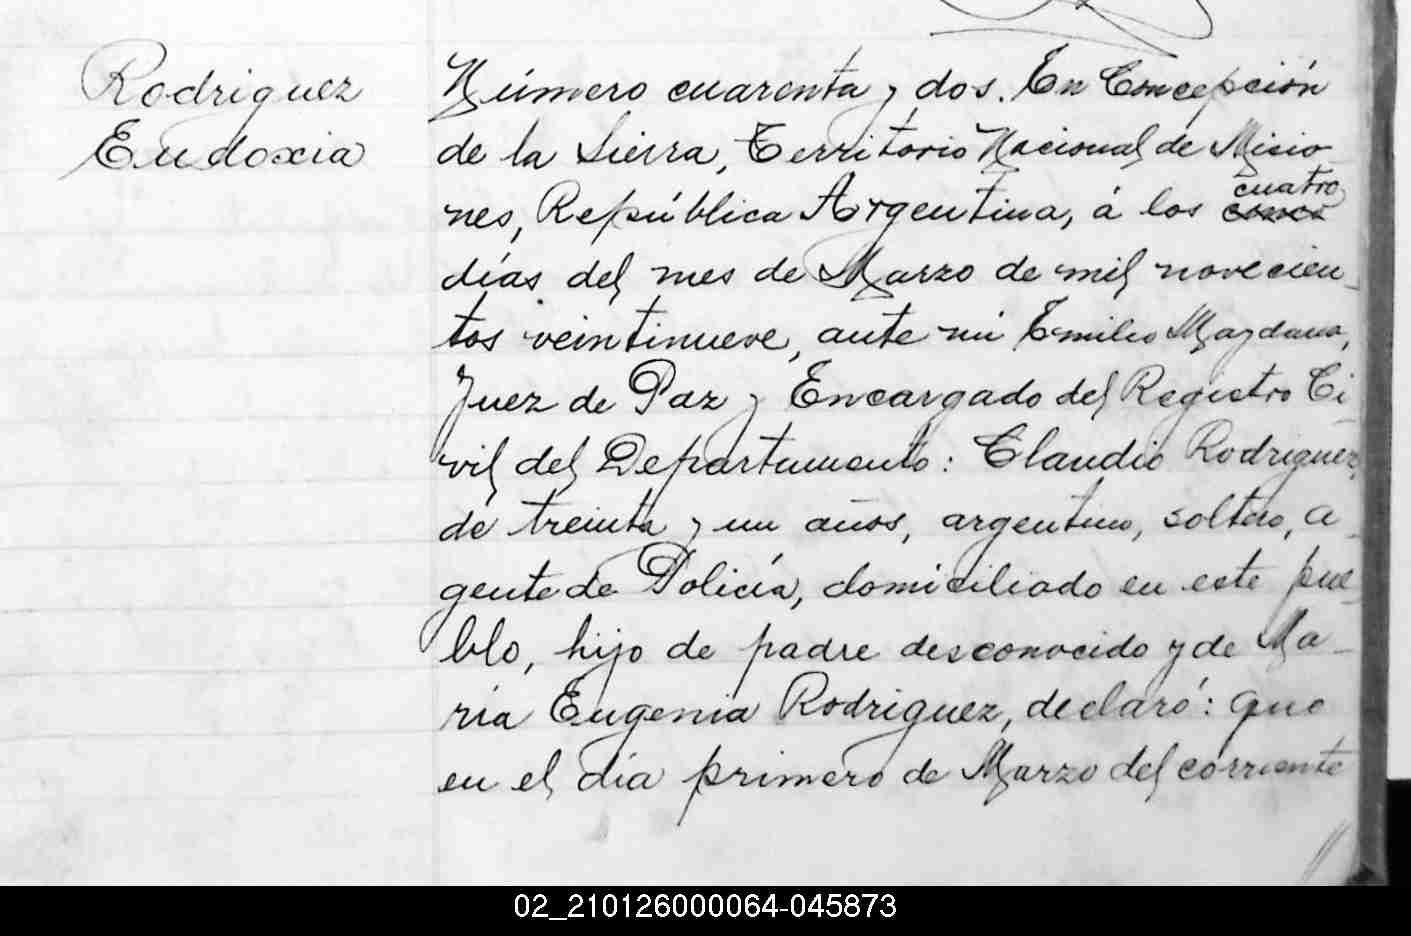 Rodriguez
Eudoxia
Número cuarenta y dos. En Concepción
de la Sierra, Territorio Nacional de Misio
nes, República Argentina, á los cuatro
días del mes de Marzo de mil novecien_
tos veintinueve, ante mi Emilio
Juez de Paz y Encargado del Registro Ci
vil del Departamento: Claudio Rodriguez,
de treinta y un años, argentino, soltero, a_
gente de Policía, domiciliado en este pue_
blo, hijo de padre desconocido y de Ma_
ría Eugenia Rodriguez, declaró: que
en el día primero de Marzo del corriente
02_210126000064-045873